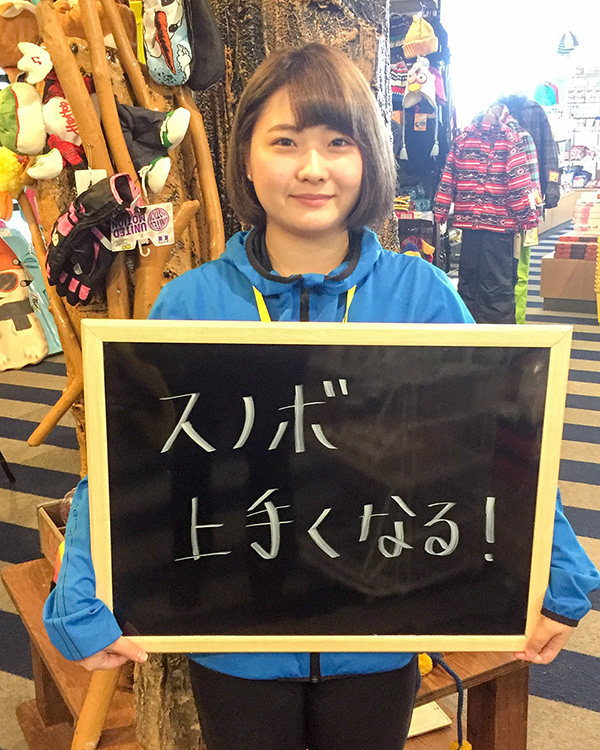 スノボ
上手くなる!
UNITED
MOTION